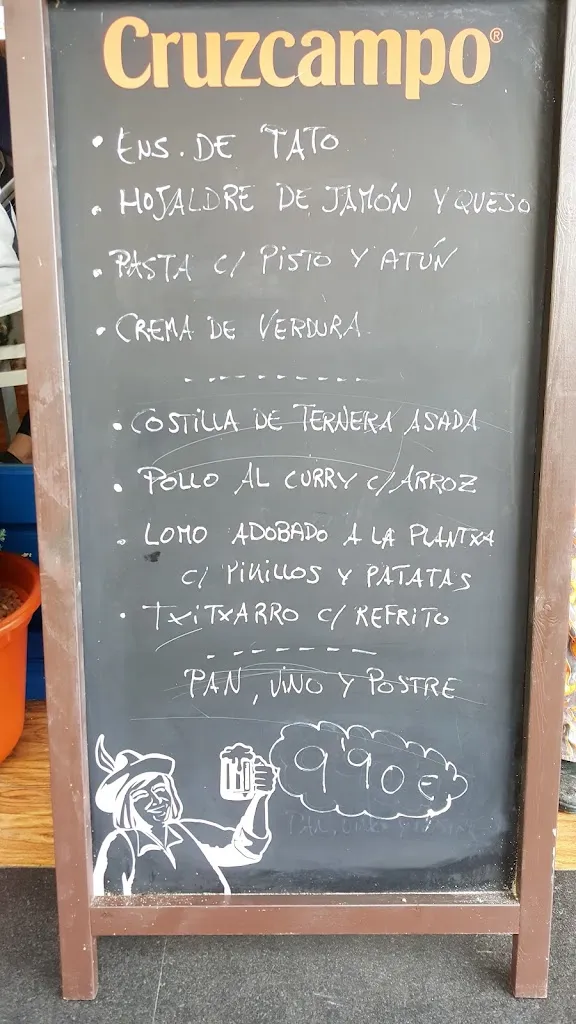 Cruzcampo®
• ENS. DE TATO
• HOJALDRE DE JAMÓN Y QUESO
• PASTA C/ PISTO Y ATÚN
• CREMA DE VERDURA
- - - - - - - - - -
• COSTILLA DE TERNERA ASADA
• POLLO AL CURRY C/ ARROZ
• LOMO ADOBADO A LA PLANTXA
C/ PIKILLOS Y PATATAS
• TXITXARRO C/ REFRITO
- - - - - - -
PAN, VINO Y POSTRE
9'90 €